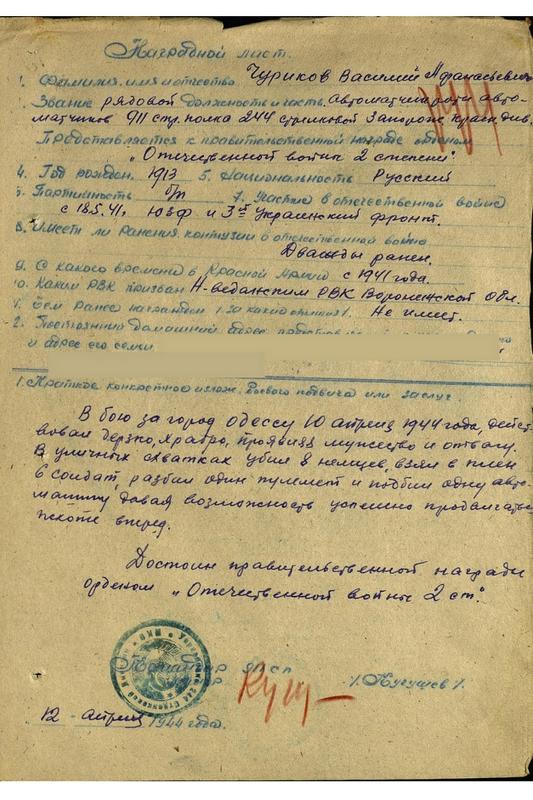 Наградной лист.
1. Фамилия, имя и отчество Чуриков Василий Афанасьевич
2. Звание рядовой Должность и часть. автоматчик роты авто-
матчиков 911 стр. полка 244 стрелковой Запорож. Краснд. див.
Представляется к правительственной награде орденом
„Отечественной войны 2 степени"
4. Год рожден. 1913 5. Национальность Русский
6. Партийность б/п 7. Участие в отечественной войне
с 18.5.41г. ЮЗФ и 3й Украинский фронт.
8. Имеет ли ранения. контузии в отечественной войне
Дважды ранен.
9. С какого времени в Красной Армии с 1941 года.
10. Каким РВК призван Н-Веданским РВК Воронежской Обл.
Чем ранее награжден 1 за какие отличия 1. Не имеет.
2. Постоянный домашний адрес
и адрес его семьи
1. Краткое конкретное излож. боевого подвига или заслуг.
В бою за город Одессу 10 апреля 1944 года, дейст-
вовал дерзко, храбро, проявляя мужество и отвагу.
В уличных схватках убил 8 немцев, взял в плен
6 солдат, разбил один пулемет и подбил одну авто-
машину, давая возможность успешно продвигаться
пехоте вперед.
Достоин правительственной награды
орденом „Отечественной войны 2 ст."
Командир 911 сп
/. Кугушев /.
12 - апреля 1944 года.